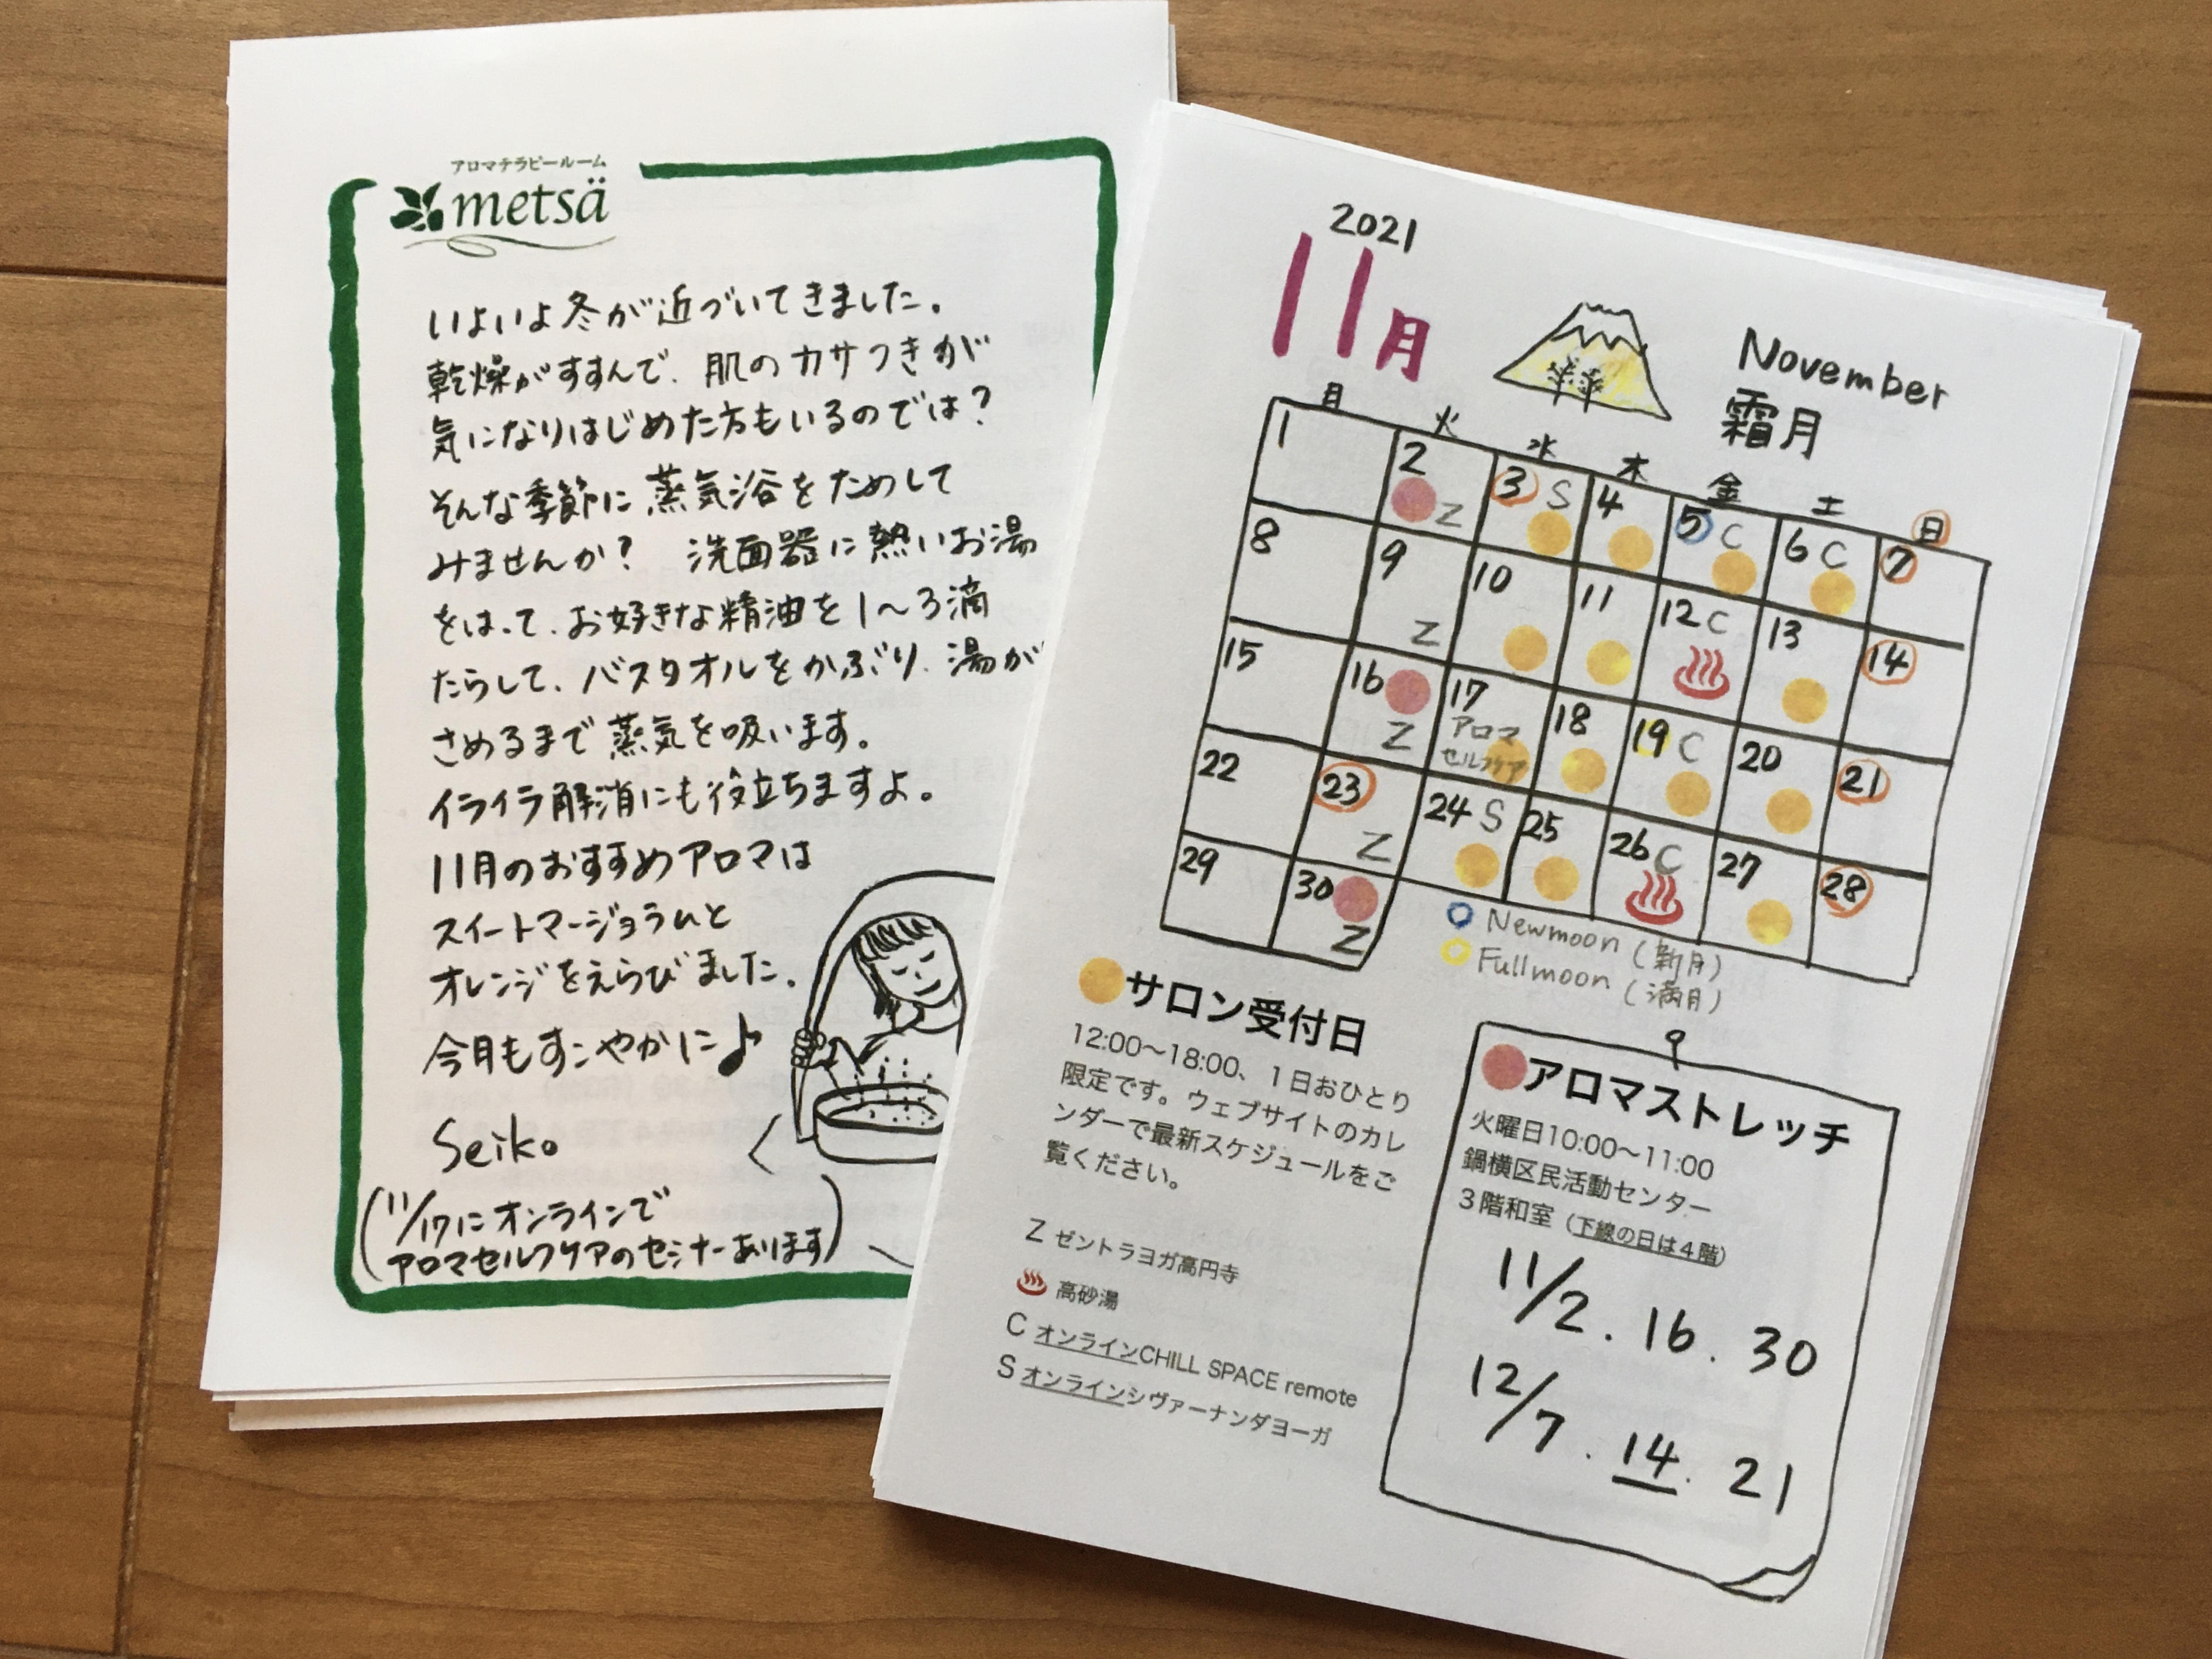 アロマテラピールーム
metsä
いよいよ冬が近づいてきました。
乾燥がすすんで、肌のカサつきが
気になりはじめた方もいるのでは?
そんな季節に蒸気浴をためして
みませんか? 洗面器に熱いお湯
をはって、お好きな精油を1〜3滴
たらして、バスタオルをかぶり、湯が
さめるまで蒸気を吸います。
イライラ解消にも役立ちますよ。
11月のおすすめアロマは
スイートマージョラムと
オレンジをえらびました。
今月もすこやかに♪
Seiko
(11/17にオンラインで
アロマセルフケアのセミナーあります)
2021
11月
November
霜月
月 火 水 木 金 土 日
1 2 Z 3 S 4 5 C 6 C 7
8 9 Z 10 11 12 C ♨ 13 14
15 16 Z 17 アロマセルフケア 18 19 C 20 21
22 23 Z 24 S 25 26 C ♨ 27 28
29 30 Z
Newmoon (新月)
Fullmoon (満月)
サロン受付日
12:00〜18:00、1日おひとり
限定です。ウェブサイトのカレ
ンダーで最新スケジュールをご
覧ください。
Z ゼントラヨガ高円寺
♨ 高砂湯
C オンラインCHILL SPACE remote
S オンラインシヴァーナンダヨーガ
アロマストレッチ
火曜日10:00〜11:00
鍋横区民活動センター
3階和室(下線の日は4階)
11/2. 16. 30
12/7. 14. 21